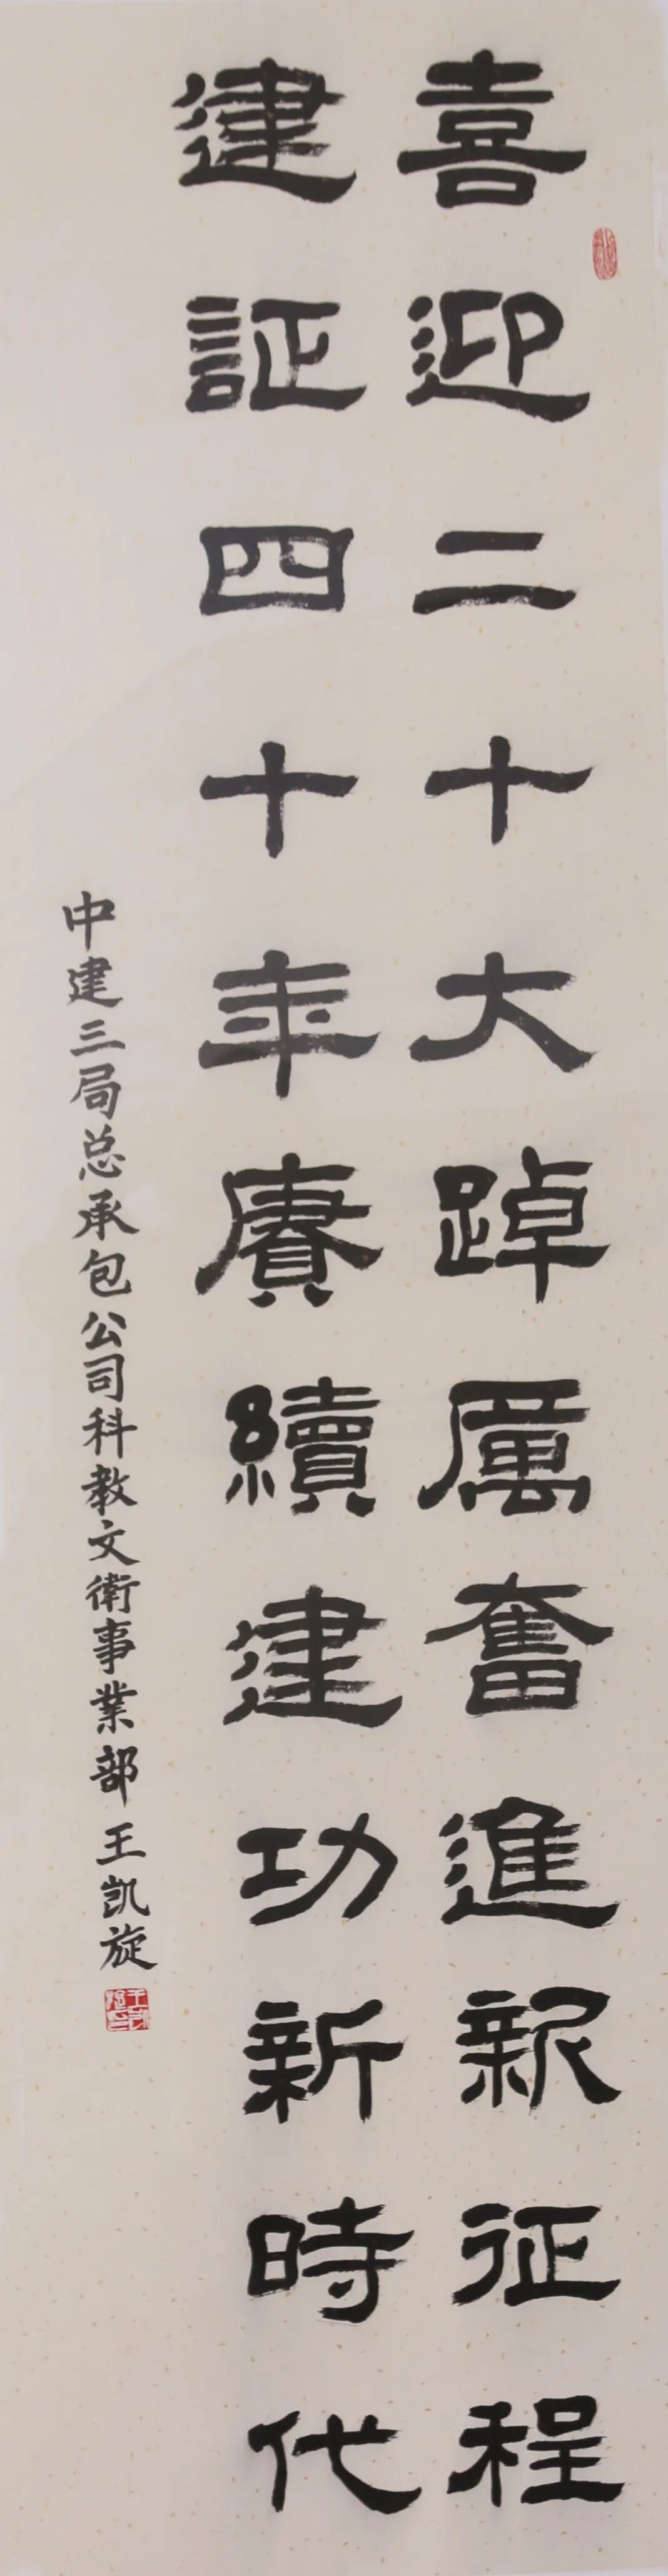 喜迎二十大踔厲奮進新征程
建証四十年賡續建功新時代
中建三局总承包公司科教文衛事業部王凯旋